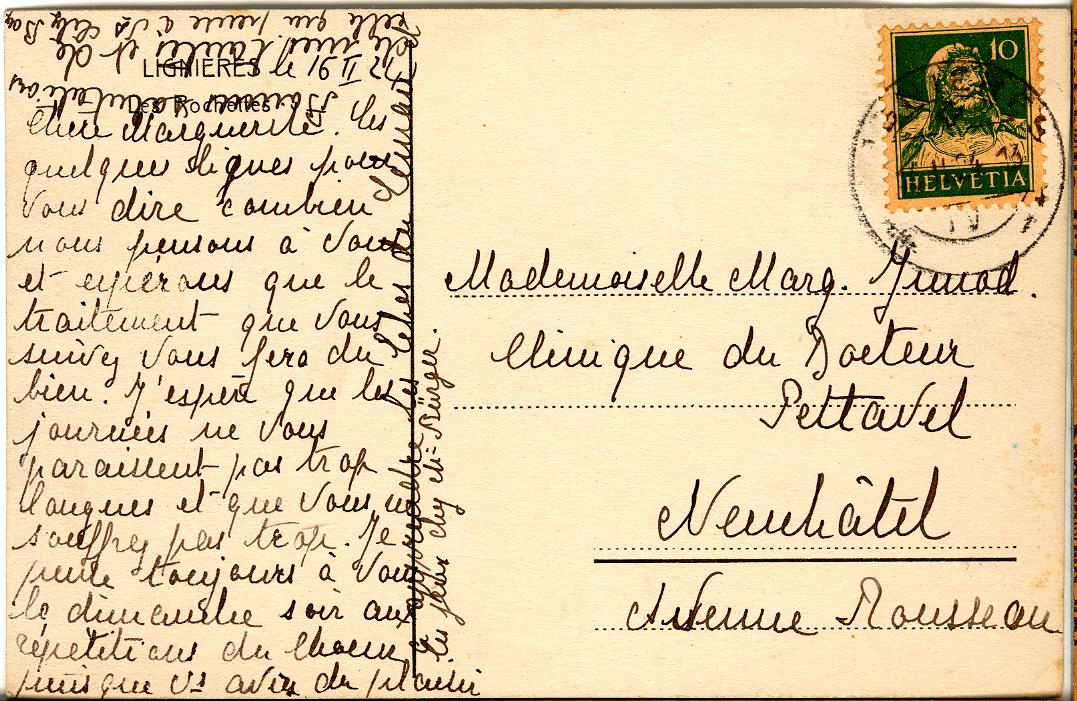 LIGNIERES
Les Rochettes
Chère Marguerite. Ces
quelques lignes pour
vous dire combien
nous pensons à vous
et espérons que le
traitement que vous
suivez vous fera du
bien. J'espère que les
journées ne vous
paraissent pas trop
longues et que vous ne
souffrez pas trop. Je
pense toujours à vous
le dimanche soir aux
répétitions du Choeur
puisque vs aviez du plaisir
à apprendre les Echos du Léman
les jeux chez Mme Bürger.
Bonnes salutations
de
celle qui pense à vs
HELVETIA
10
Mademoiselle Marg. Junod.
Clinique du Docteur
Pettavel
Neuchâtel
Avenue Rousseau